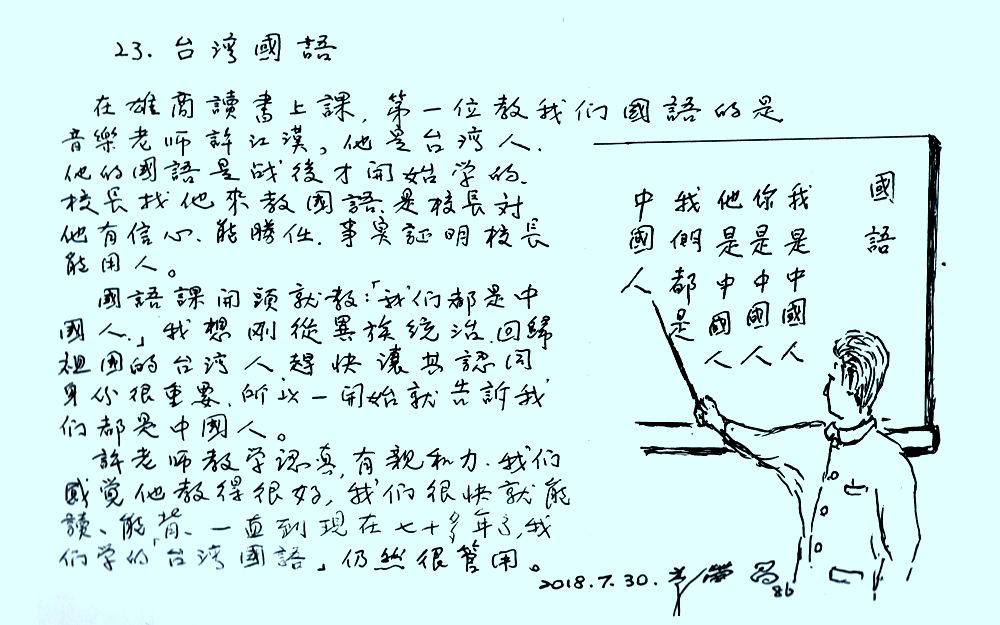 23. 台湾國語
在雄商讀書上課，第一位教我们國語的是
音樂老师許江漢。他是台湾人.
他的國語是战後才開始学的.
校長找他來教國語.是校長対
他有信心、能勝任.事実証明校長
能用人。
國語課開頭就教：「我们都是中
國人.」我想剛從異族統治.回歸
祖国的台湾人趕快讓其認同
身份很重要.所以一開始就告訴我
们都是中國人。
許老师教学認真,有親和力.我们
感覚他教得很好,我们很快就能
讀、能背、一直到現在七十多年了,我
们学的「台湾國語」仍然很管用。
國語
我是中國人
你是中國人
他是中國人
我們都是
中國人
2018.7.30.
86